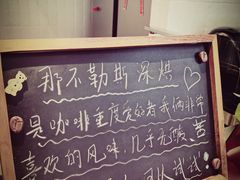 那不勒斯 深烘
是咖啡重度爱好者我俩非常
喜欢的风味,几乎无酸 苦
可以试试